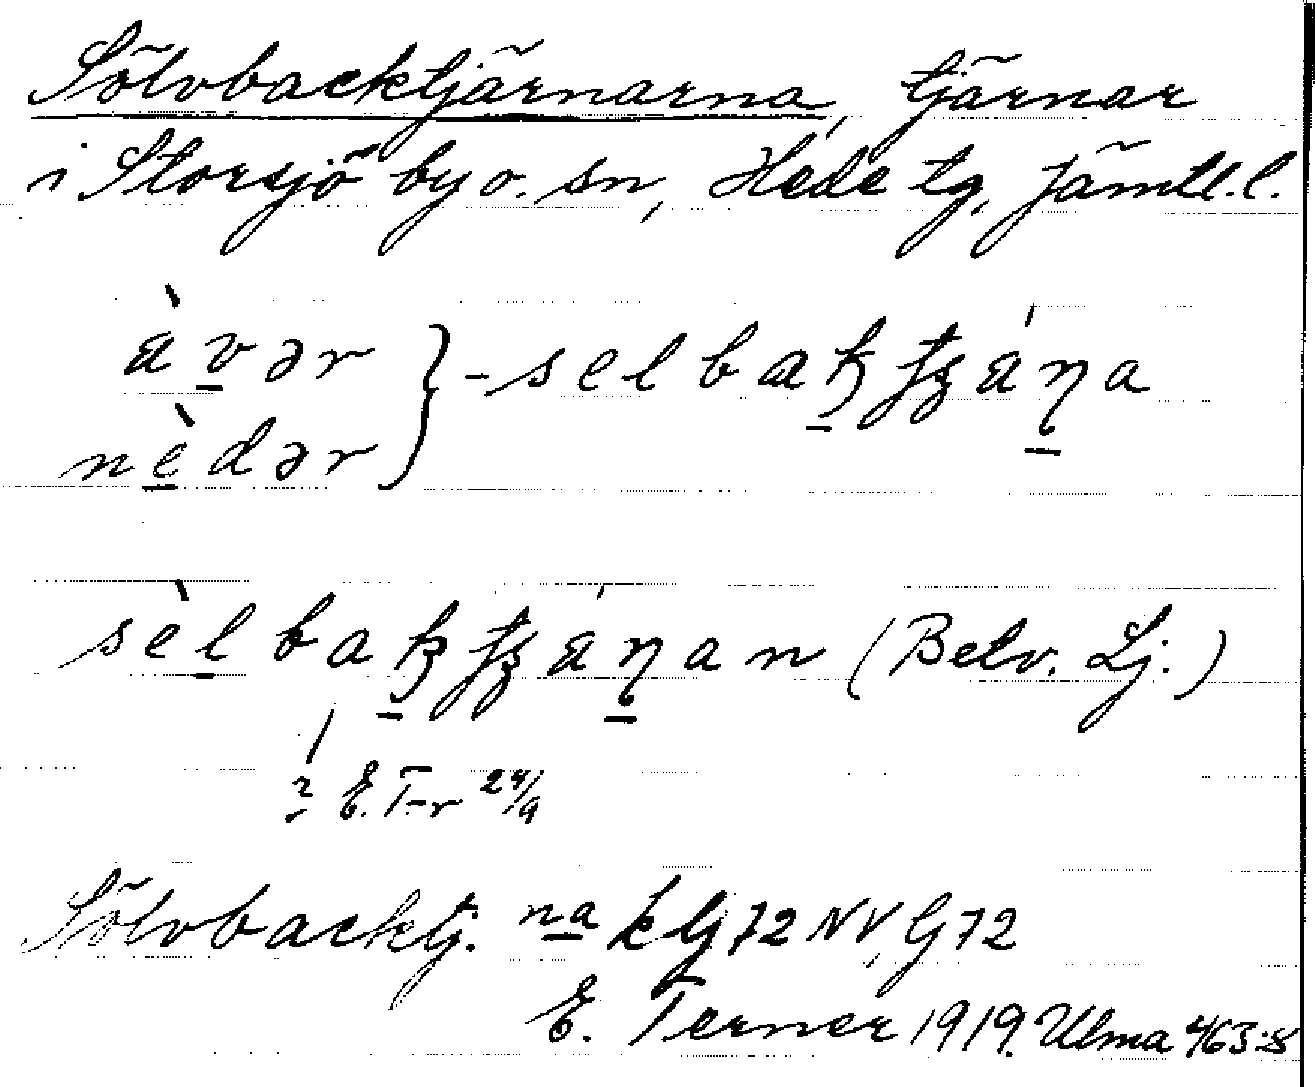 Sölvbacktjärnarna, tjärnar
i Storsjö by o. sn, Hede tg, Jämtl. l.
àvər } -selbakţʂáɳa
nèdər
sèlbakţʂáɳan (Betv. Lj.)
? E. T-r 24/9
Sölvbacktj. na k Gj 72 NV, G 72
E. Terner 1919. Ulma 463:8